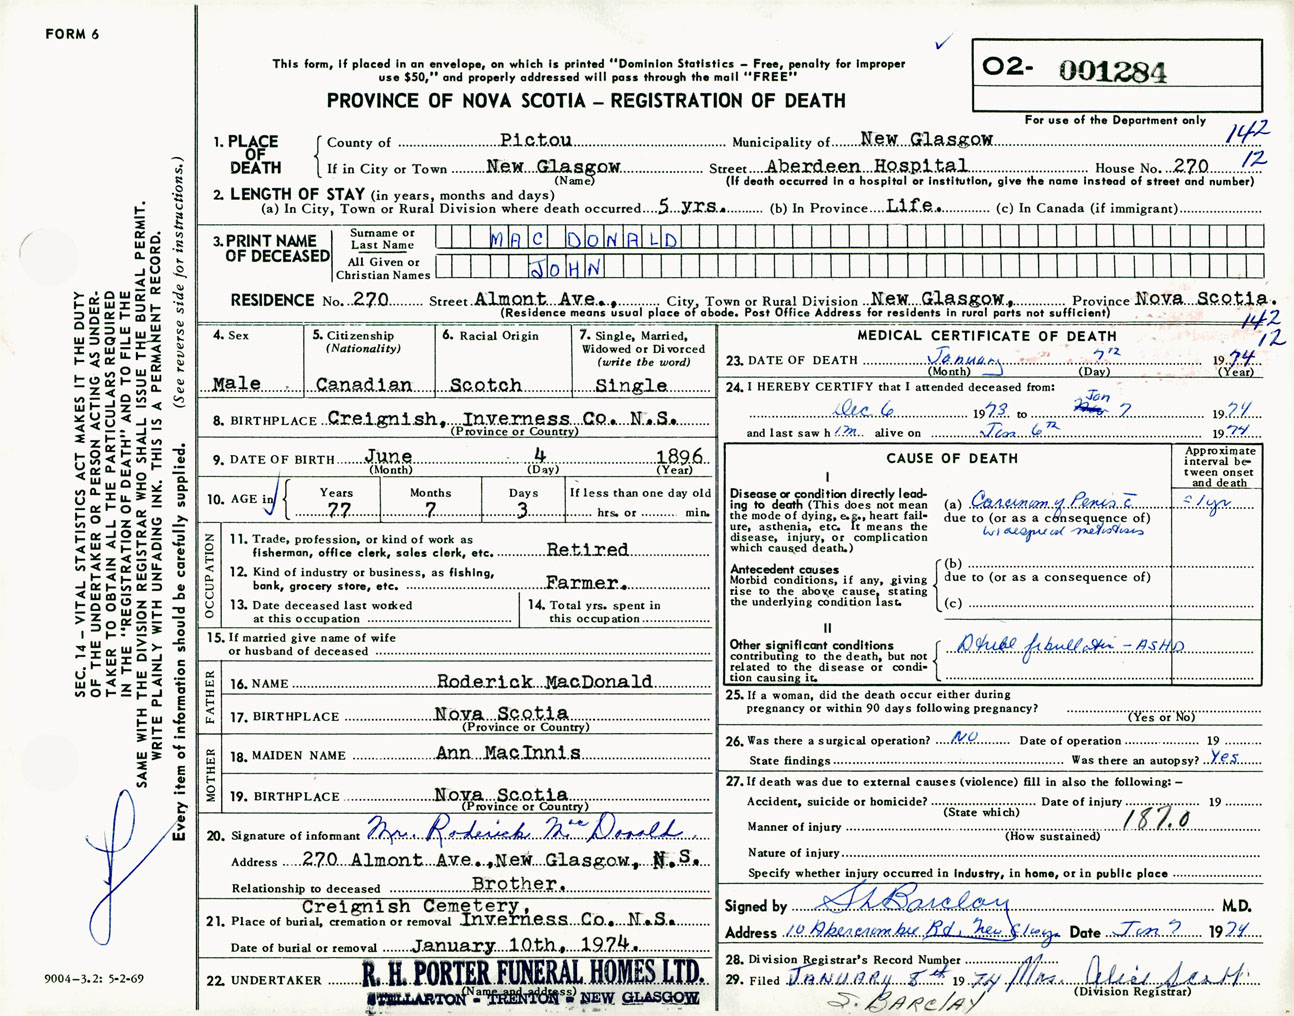 FORM 6
This form, if placed in an envelope, on which is printed "Dominion Statistics – Free, penalty for improper
use $50," and properly addressed will pass through the mail "FREE"
PROVINCE OF NOVA SCOTIA – REGISTRATION OF DEATH
O2- 001284
For use of the Department only
142
12
1. PLACE OF DEATH
County of Pictou Municipality of New Glasgow
If in City or Town New Glasgow Street Aberdeen Hospital House No. 270
(Name) (If death occurred in a hospital or institution, give the name instead of street and number)
2. LENGTH OF STAY (in years, months and days)
(a) In City, Town or Rural Division where death occurred 5 yrs. (b) In Province Life. (c) In Canada (if immigrant)
3. PRINT NAME OF DECEASED
Surname or Last Name MAC DONALD
All Given or Christian Names JOHN
RESIDENCE No. 270 Street Almont Ave., City, Town or Rural Division New Glasgow, Province Nova Scotia.
(Residence means usual place of abode. Post Office Address for residents in rural parts not sufficient)
142
12
4. Sex
Male
5. Citizenship
(Nationality)
Canadian
6. Racial Origin
Scotch
7. Single, Married,
Widowed or Divorced
(write the word)
Single
8. BIRTHPLACE Creignish, Inverness Co. N.S.
(Province or Country)
9. DATE OF BIRTH June 4 1896
(Month) (Day) (Year)
10. AGE in
Years Months Days If less than one day old
77 7 3 hrs. or min.
OCCUPATION
11. Trade, profession, or kind of work as
fisherman, office clerk, sales clerk, etc. Retired
12. Kind of industry or business, as fishing,
bank, grocery store, etc. Farmer.
13. Date deceased last worked
at this occupation
14. Total yrs. spent in
this occupation
15. If married give name of wife
or husband of deceased
FATHER
16. NAME Roderick MacDonald
17. BIRTHPLACE Nova Scotia
(Province or Country)
MOTHER
18. MAIDEN NAME Ann MacInnis
19. BIRTHPLACE Nova Scotia
(Province or Country)
20. Signature of informant Mr. Roderick MacDonald
Address 270 Almont Ave., New Glasgow, N.S.
Relationship to deceased Brother.
Creignish Cemetery,
21. Place of burial, cremation or removal Inverness Co. N.S.
Date of burial or removal January 10th, 1974.
22. UNDERTAKER R. H. PORTER FUNERAL HOMES LTD.
(Name and address)
STELLARTON - TRENTON - NEW GLASGOW
MEDICAL CERTIFICATE OF DEATH
23. DATE OF DEATH January 7th 1974
(Month) (Day) (Year)
24. I HEREBY CERTIFY that I attended deceased from:
Dec 6 1973 to Jan 7 1974
and last saw him alive on Jan 6th 1974
CAUSE OF DEATH
Approximate
interval be-
tween onset
and death
I
Disease or condition directly lead-
ing to death (This does not mean
the mode of dying, e.g., heart fail-
ure, asthenia, etc. It means the
disease, injury, or complication
which caused death.)
(a) Carcinoma Penis c̄ = 1yr
due to (or as a consequence of)
widespread metastasis
Antecedent causes
Morbid conditions, if any, giving
rise to the above cause, stating
the underlying condition last.
(b)
due to (or as a consequence of)
(c)
II
Other significant conditions
contributing to the death, but not
related to the disease or condi-
tion causing it.
Atrial fibrillation – ASHD
25. If a woman, did the death occur either during
pregnancy or within 90 days following pregnancy?
(Yes or No)
26. Was there a surgical operation? No Date of operation 19
State findings Was there an autopsy? Yes
27. If death was due to external causes (violence) fill in also the following: –
Accident, suicide or homicide? Date of injury 19
(State which)
Manner of injury 187.0
(How sustained)
Nature of injury
Specify whether injury occurred in industry, in home, or in public place
Signed by S Barclay M.D.
Address 10 Abercrombie Rd. New Glasgow Date Jan 7 1974
28. Division Registrar's Record Number
29. Filed JANUARY 8th 1974 Mrs. Alice Scott
(Division Registrar)
S. BARCLAY
SEC. 14 – VITAL STATISTICS ACT MAKES IT THE DUTY
OF THE UNDERTAKER OR PERSON ACTING AS UNDER-
TAKER TO OBTAIN ALL THE PARTICULARS REQUIRED
IN THE "REGISTRATION OF DEATH" AND TO FILE THE
SAME WITH THE DIVISION REGISTRAR WHO SHALL ISSUE THE BURIAL PERMIT.
WRITE PLAINLY WITH UNFADING INK. THIS IS A PERMANENT RECORD.
Every item of information should be carefully supplied. (See reverse side for instructions.)
9004-3.2: 5-2-69